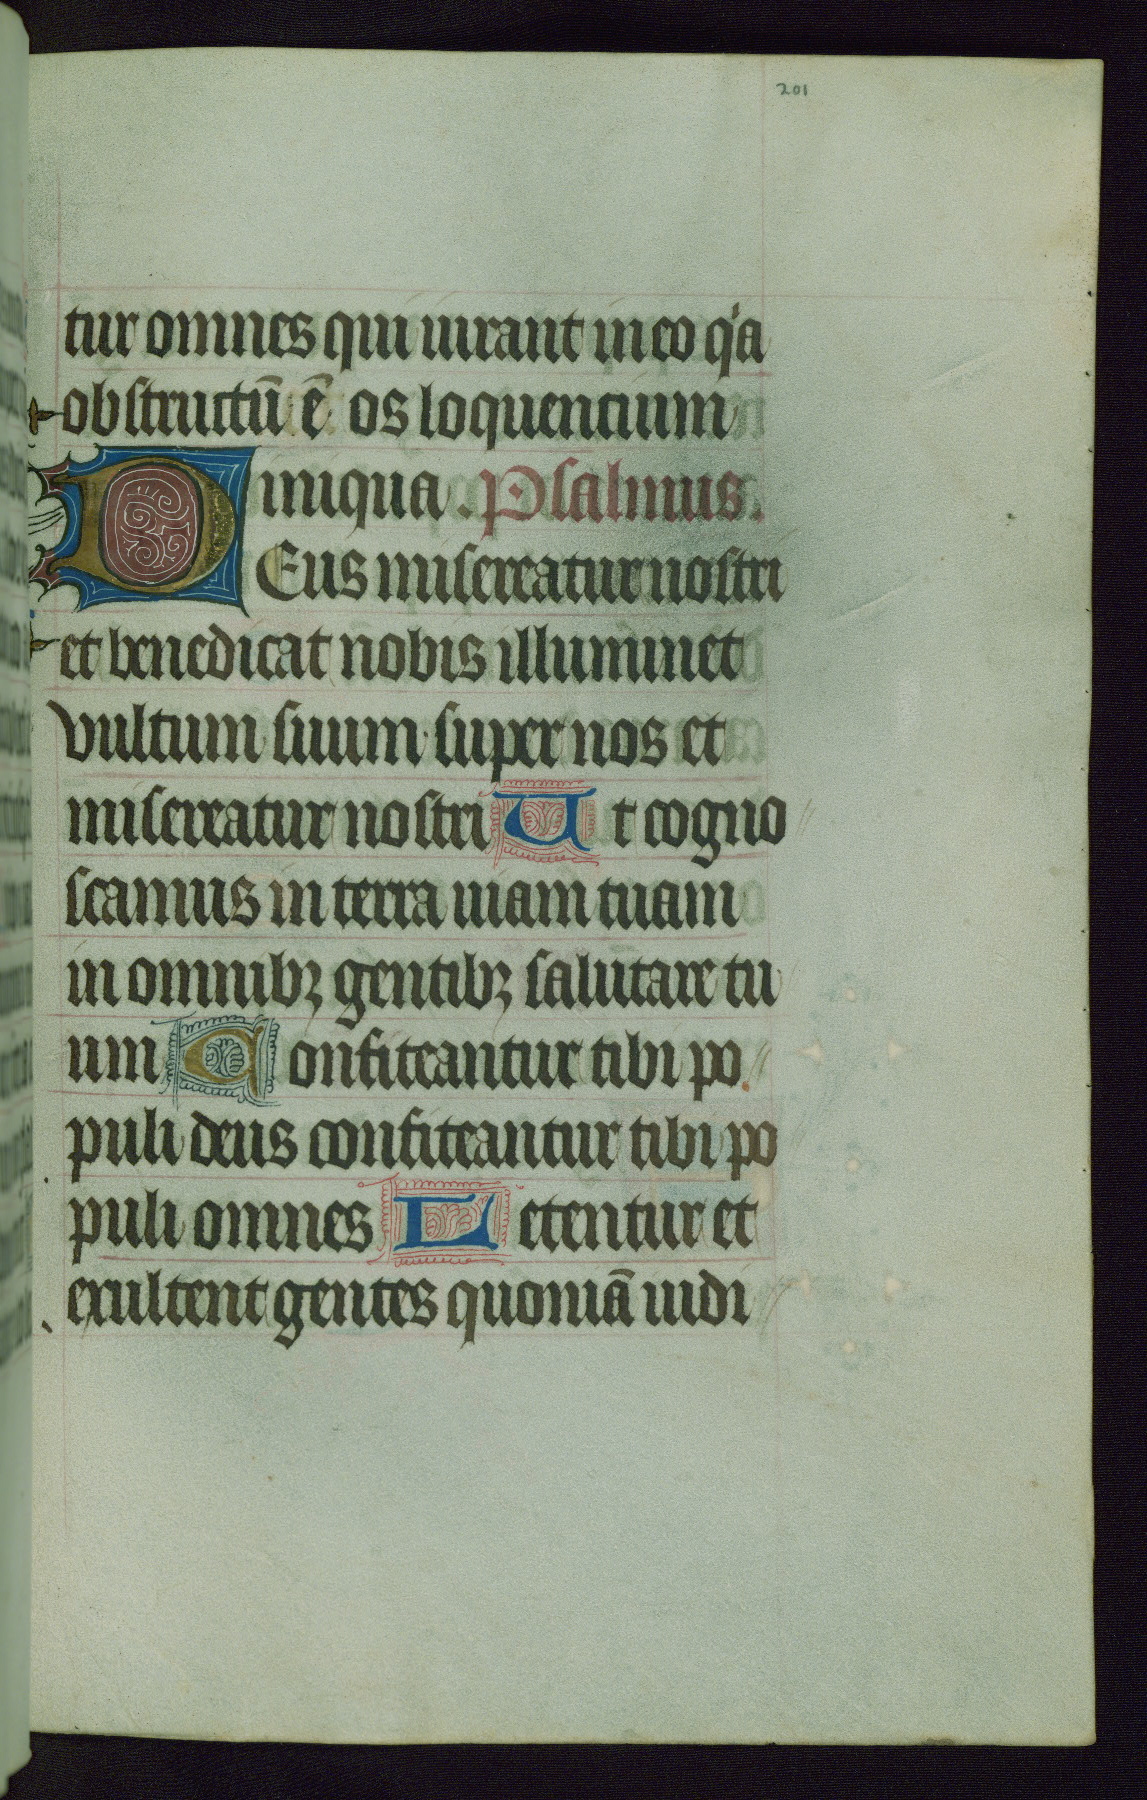 201
tur omnes qui iurant in eo q'a
obstructū ē os loquencium
iniqua . Psalmus.
DEus misereatur nostri
et benedicat nobis illuminet
vultum suum super nos et
misereatur nostri Ut cogno
scamus in terra uiam tuam
in omnibꝫ gentibꝫ salutare tu
um Confiteantur tibi po
puli deus confiteantur tibi po
puli omnes Letentur et
exultent gentes quoniā iudi